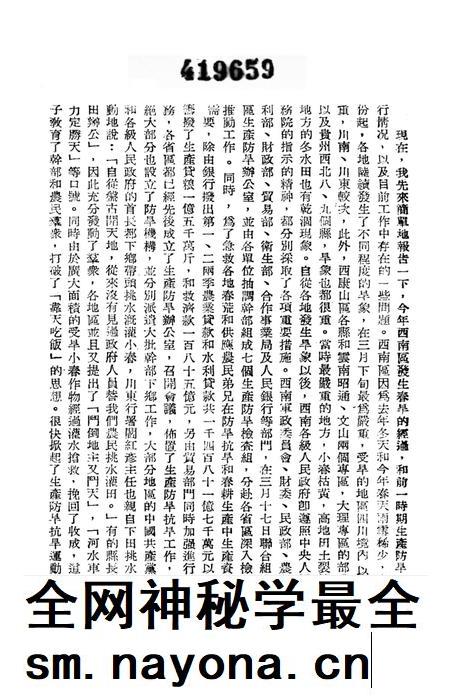 419659
現在，我先來簡單地報告一下，今年西南區發生春旱的經過，和前一時期生產防旱
行情况，以及目前工作中存在的一些問題。西南區因爲去年冬天和今年春天雨雪稀少，
份起，各地陸續發生了不同程度的旱象，在三月下旬最爲嚴重，受旱的地區四川境內以
重，川南、川東較次，此外，西康山區各縣和雲南昭通、文山兩個專區，大理專區的部
以及貴州西北八、九個縣，旱象也都很重。當時最嚴重的地方，小春枯黃，高地田土裂
地方的多水田也有乾涸現象。自從各地發生旱象以後，西南各級人民政府卽遵照中央人
務院的指示的精神，都分別採取了各項重要措施。西南軍政委員會、財委、民政部、農
利部、財政部、貿易部、衛生部、合作事業局及人民銀行等部門，在三月十七日聯合組
區生產防旱辦公室，並由各單位抽調幹部組成七個生產防旱檢查組，分赴各省區深入檢
推動工作。同時，爲了急救各地春荒和供應農民弟兄在防旱抗旱和春耕生產中生產資
需要，除由銀行撥出第一、二兩季農業貸款和水利貸款共一千四百八十一億七千萬元以
籌撥了生產貸糧一億五千萬斤，和救濟款一百八十五億元，另由貿易部門同時加強進行
務，各省區都已經先後成立了生產防旱辦公室，召開會議，佈置了生產防旱抗旱工作，
絕大部分也設立了防旱機構，並分別派遣大批幹部下鄉工作，大部分地區的中國共產黨
和各級人民政府的首長都下鄉帶頭挑水澆灌小春，川東行署閻紅彥主任也親自下田挑水
動地說：「自從盤古開天地，從來沒有見過政府人員替我們農民挑水灌田。」有的縣長
田辦公」，因此充分發動了羣衆，各地區並且又提出了「鬥倒地主又鬥天」，「河水車
力定勝天」等口號。同時由於廣大面積的受旱小春作物經過灌水搶救，挽回了收成，這
子敎育了幹部和農民羣衆，打破了「靠天吃飯」的思想。很快掀起了生產防旱抗旱運動
全网神秘学最全
sm.nayona.cn